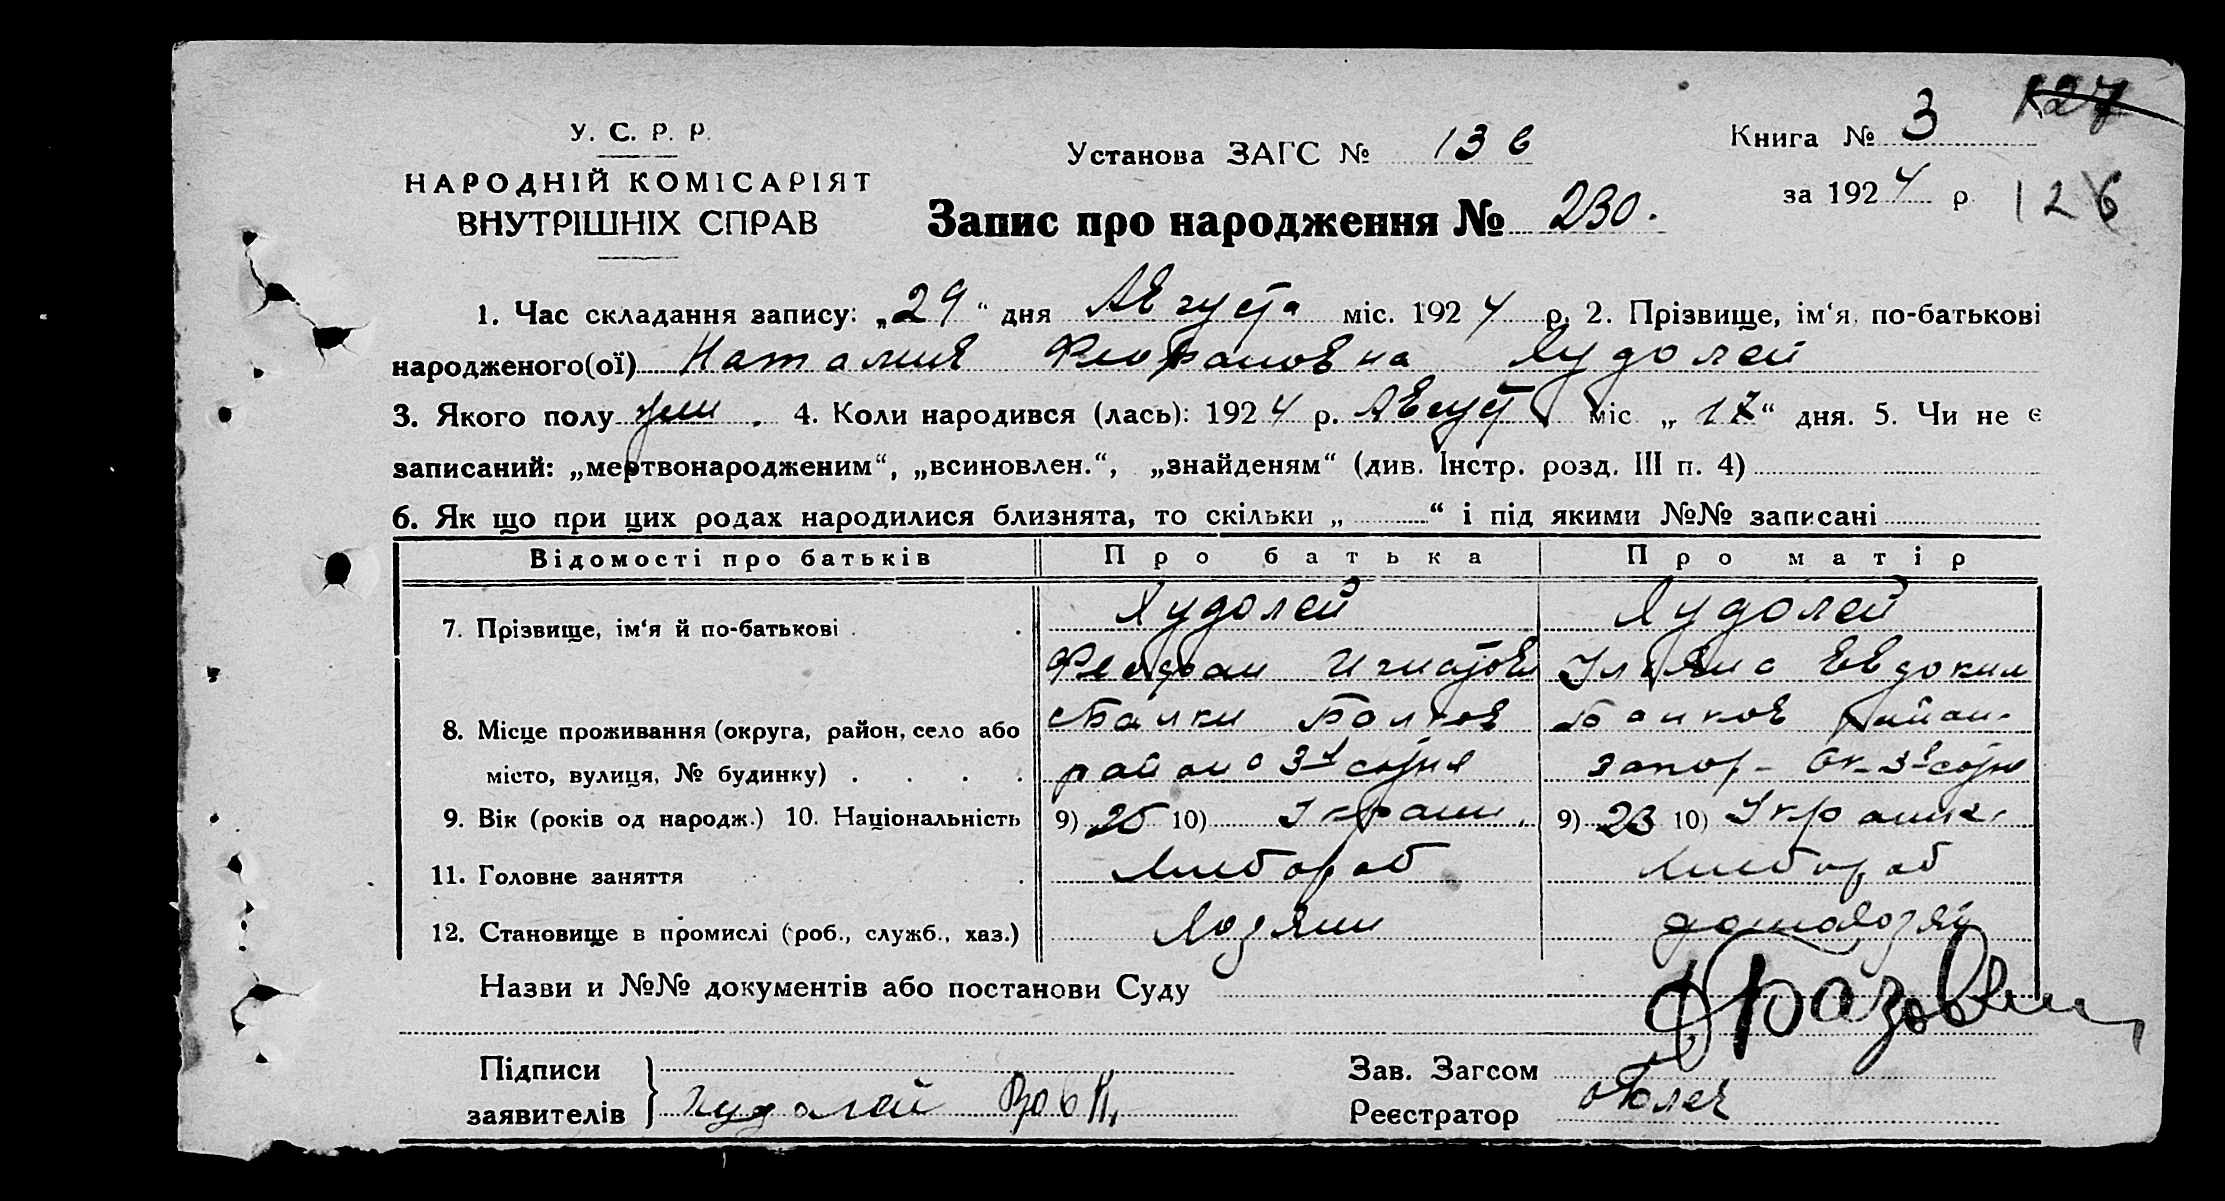 У. С. Р. Р.
НАРОДНІЙ КОМІСАРІЯТ
ВНУТРІШНІХ СПРАВ
Установа ЗАГС № 136
Книга № 3
127
за 1924 р
126
Запис про народження № 230.
1. Час складання запису: „29“ дня Августа міс. 1924 р. 2. Прізвище, ім‘я, по-батькові
народженого(ої) Наталия Феофановна Худолей
3. Якого полу жен. 4. Коли народився (лась): 1924 р. Август міс „17“ дня. 5. Чи не є
записаний: „мертвонародженим“, „всиновлен.“, „знайденям“ (див. Інстр. розд. III п. 4)
6. Як що при цих родах народилися близнята, то скільки „ “ і під якими №№ записані
Відомості про батьків Про батька Про матір
7. Прізвище, ім‘я й по-батькові . . Худолей Худолей
Феофан Игнатов Ульяна Евдоким
8. Місце проживання (округа, район, село або сБалки Балков Балков район.
місто, вулиця, № будинку) . . . . района 3я сотня Запор. Ок. 3я сотня
9. Вік (років од народж.) 10. Національність 9) 25 10) Украин. 9) 23 10) Украинк.
11. Головне заняття . Хлебороб Хлебороб
12. Становище в промислі (роб., служб., хаз.) Хозяин домахозяй
Назви и №№ документів або постанови Суду
Підписи
заявителів } Худолей
Зав. Загсом
Реєстратор